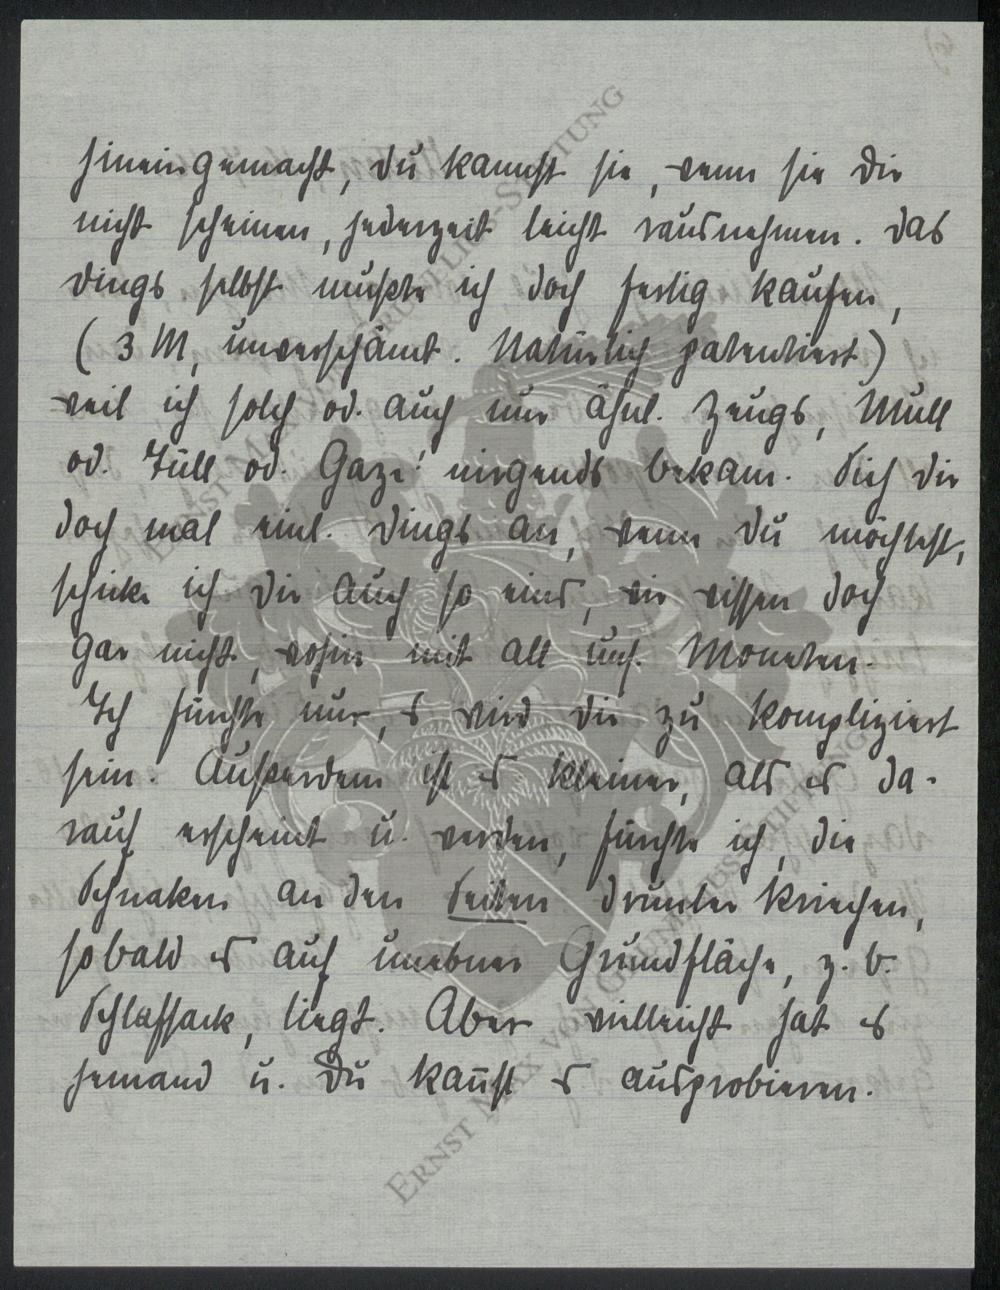 hineingemacht, du kannst sie, wenn sie dir
nicht scheinen, jederzeit leicht rausnehmen. Das
Dings selbst mußte ich doch fertig kaufen,
(3 M, unverschämt. Natürlich patentiert)
weil ich solch od. auch nur ähnl. Zeugs, Mull
od. Tüll od. Gaze nirgends bekam. Sieh dir
doch mal einl. Dings an, wenn du möchtest,
schicke ich dir auch so eins, wir wissen doch
gar nicht, wohin mit all uns. Moneten.
Ich fürchte nur, es wird dir zu kompliziert
sein. Außerdem ist es kleiner, als es da-
rauf erscheint u. werden, fürchte ich, die
Schnaken an den Seiten drunter kriechen,
sobald es auf unebner Grundfläche, z. b.
Schlafsack, liegt. Aber vielleicht hat es
jemand u. Du kannst es ausprobieren.
ERNST MAX VON GRUNELIUS-STIFTUNG
ERNST MAX VON GRUNELIUS-STIFTUNG